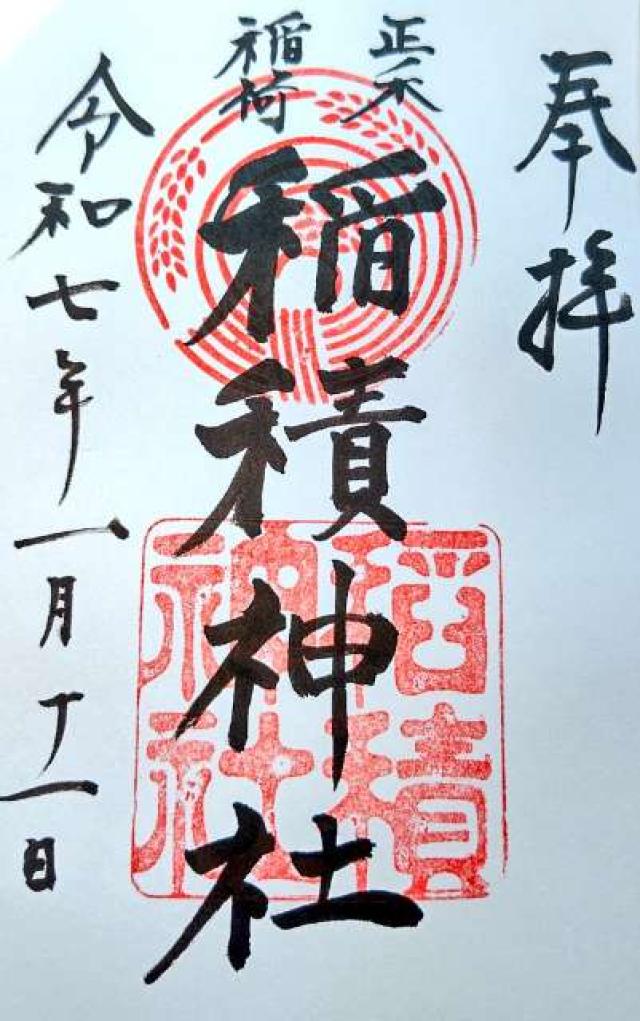 奉拝
正ノ木
稲荷
稲積神社
稲積
神社
令和七年一月十一日